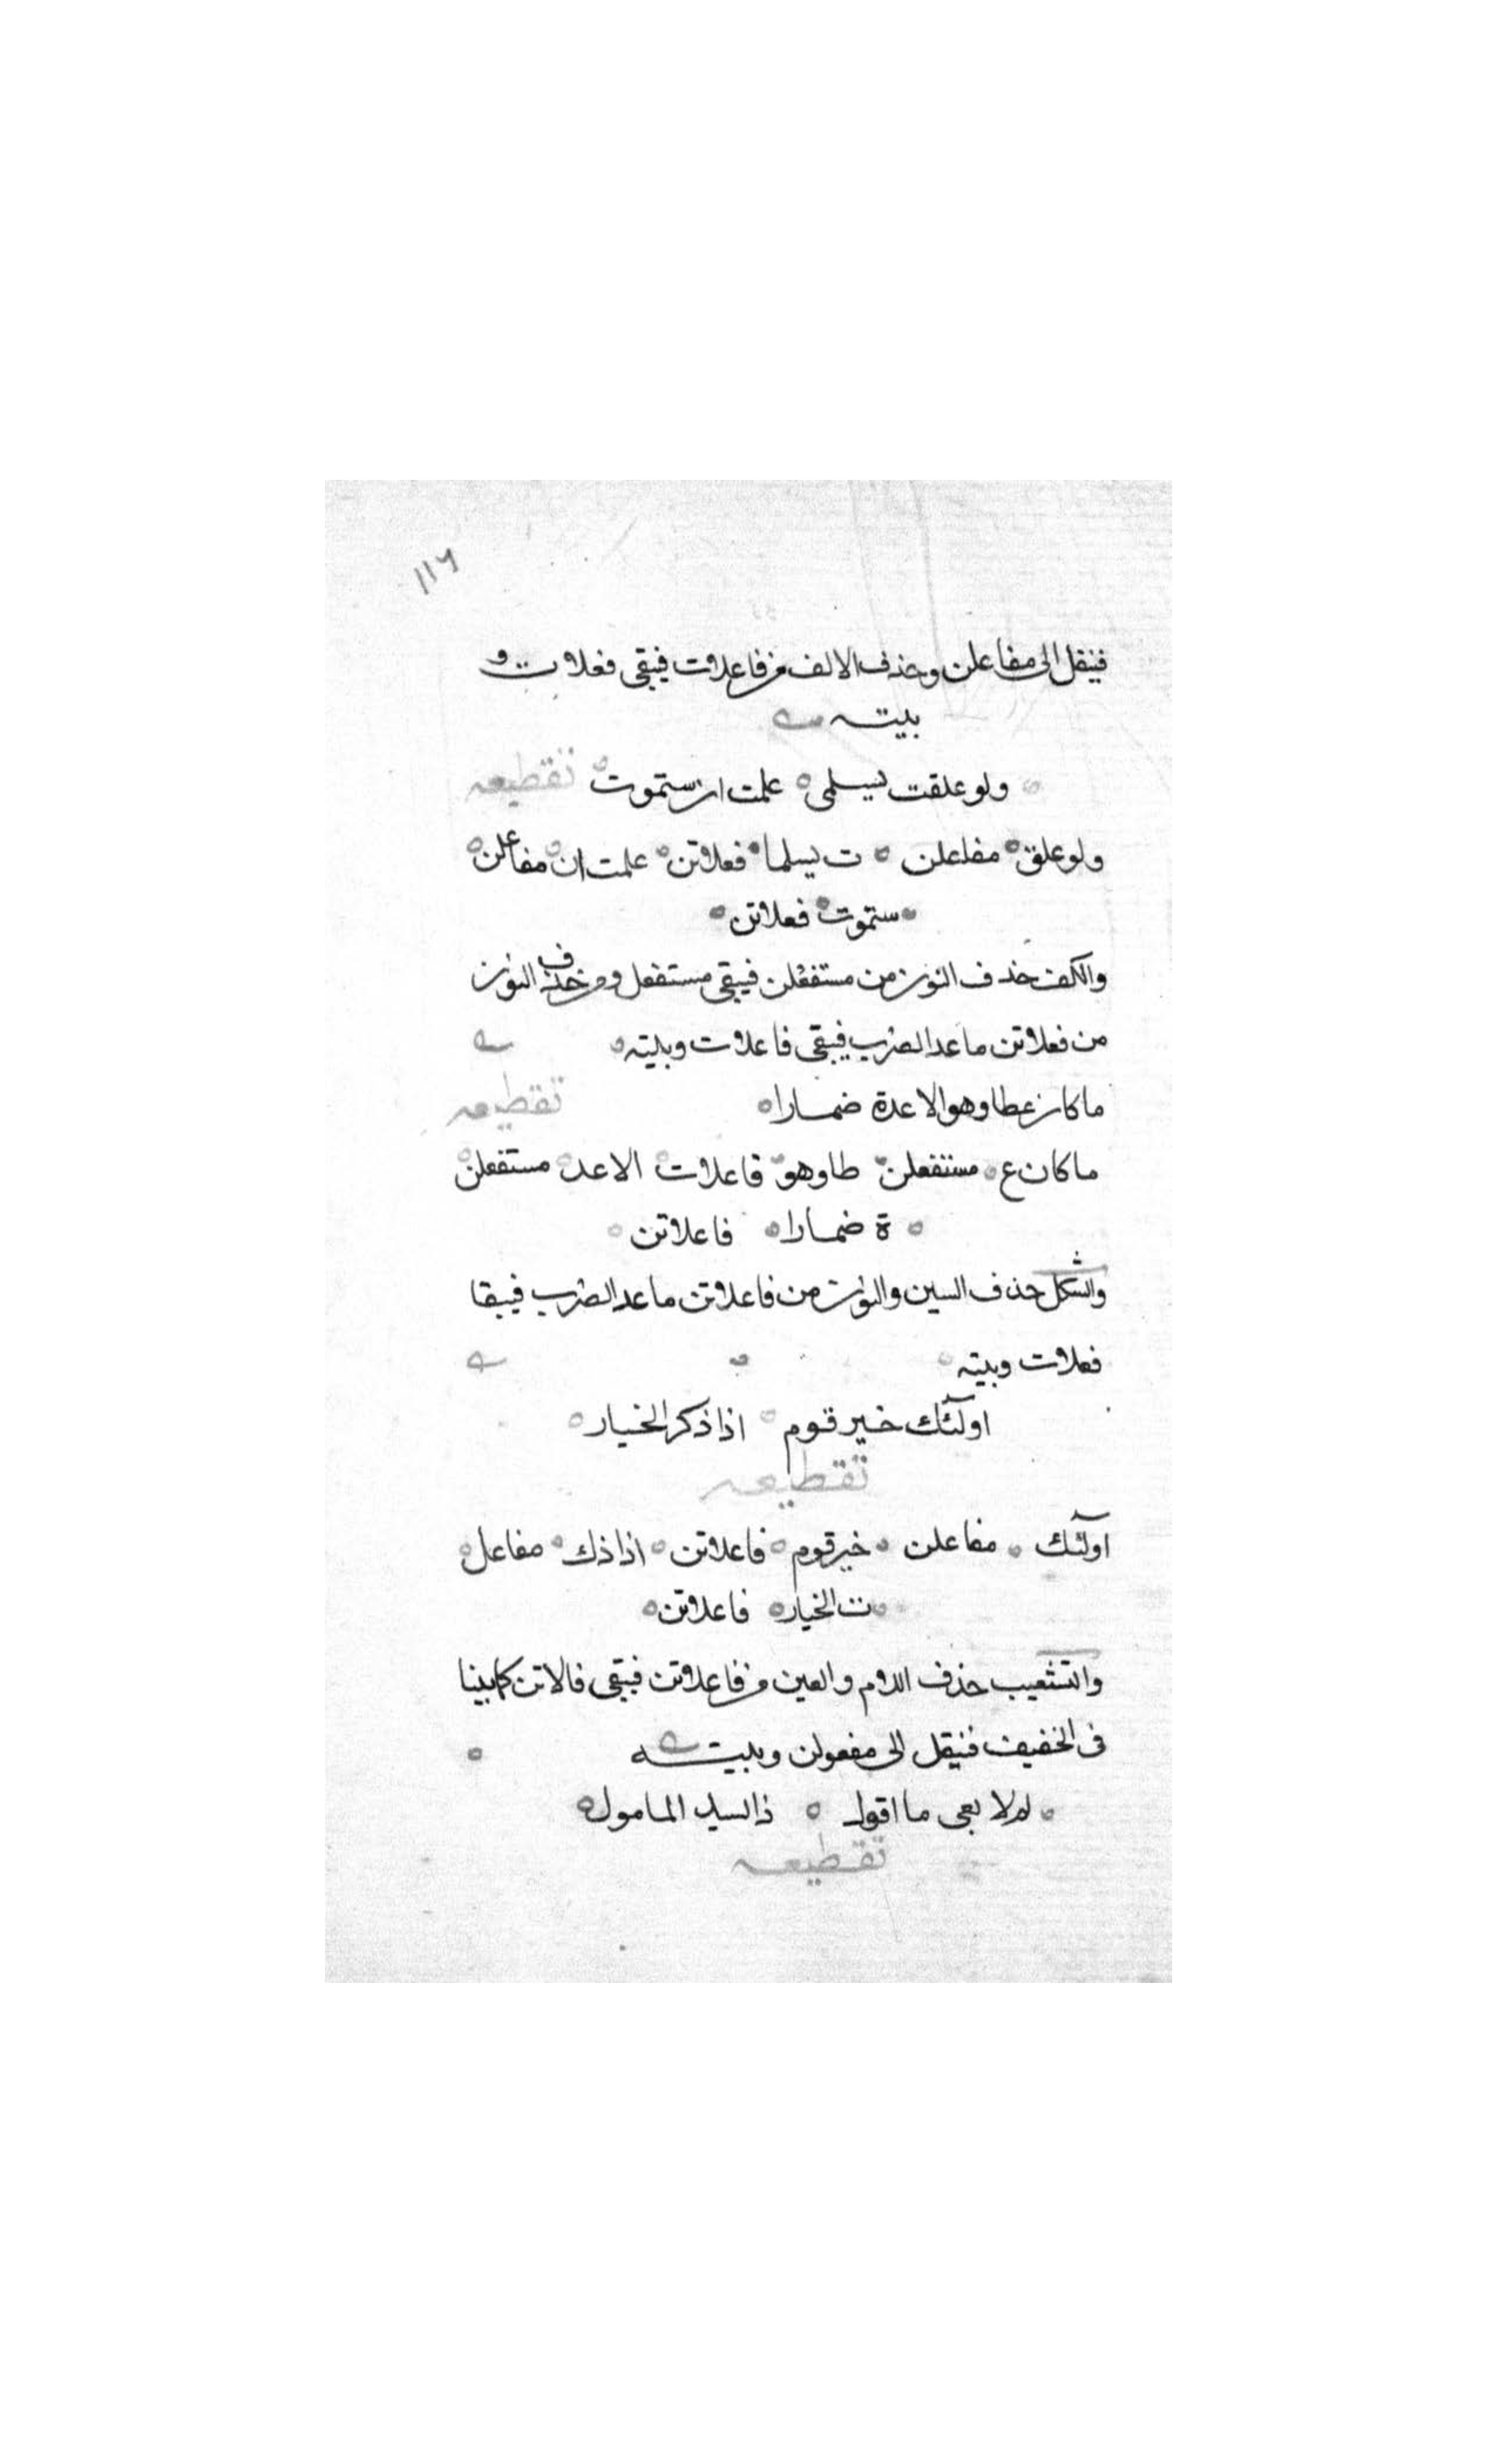 ١١٦
فينقل الى مفاعلن وحذف الالف من فاعلات فيبقى فعلات و
بيته
ولو علقت بسلمى علمت ان ستموت تقطيعه
ولو علق مفاعلن ت بسلما فعلاتن علمت ان مفاعلن
ستموت فعلاتن
والكف حذف النون من مستفعلن فيبقى مستفعل ومن حذف النون
من فعلاتن ما عدا الضرب فيبقى فاعلات وبيته
ما كان عطاوهو الا عدة ضمارا تقطيعه
ما كان ع مستفعلن طاوهو فاعلات الا عد مستفعلن
ة ضمارا فاعلاتن
والشكل حذف السين والنون من فاعلاتن ما عدا الضرب فيبقا
فعلات وبيته
اولئك خير قوم اذا ذكر الخيار
تقطيعه
اولئك مفاعلن خير قوم فاعلاتن اذا ذك مفاعل
ت الخيار فاعلاتن
والتشعيب حذف اللام والعين من فاعلاتن فيبقى فالاتن كما بينا
فى الخفيف فنيقل الى مفعولن وبيته
لم لا يعى ما اقول ذا السيد المامول
تقطيعه